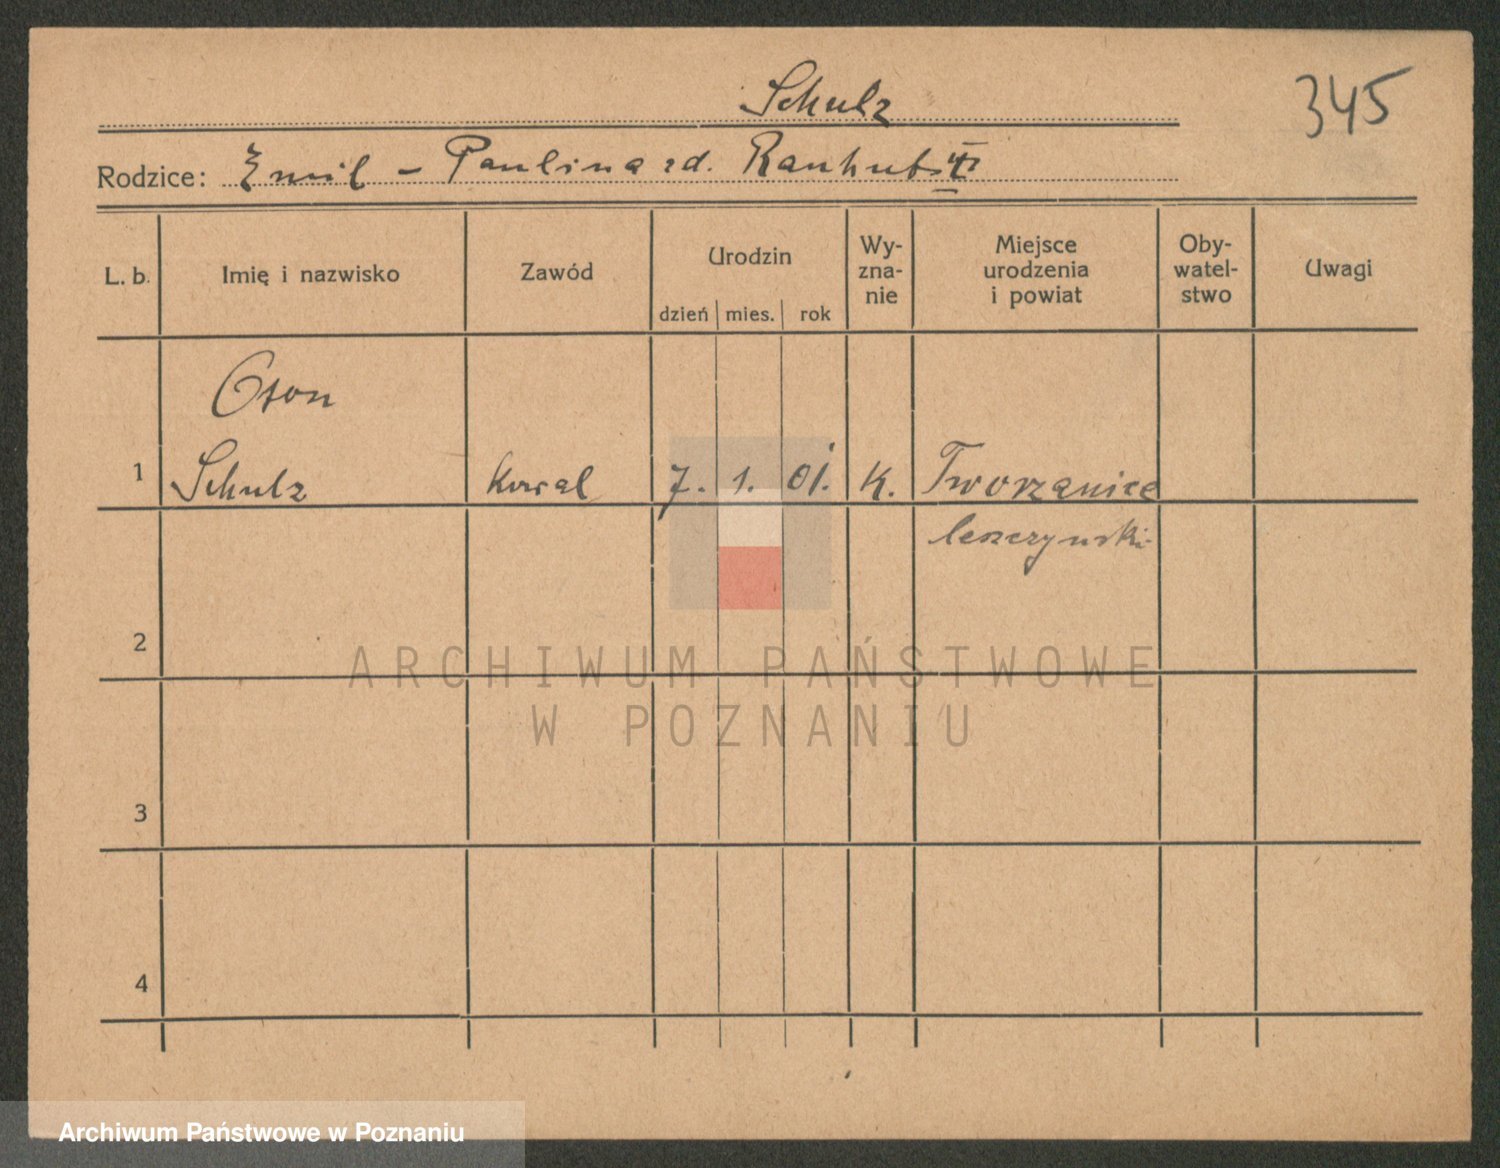 Schulz
345
Rodzice: Emil - Paulina zd. Rauhut
L. b. Imię i nazwisko Zawód Urodzin Wy-zna-nie Miejsce urodzenia i powiat Oby-watel-stwo Uwagi
dzień mies. rok
Oton
1 Schulz kowal 7. 1. 01. K. Tworzanice
leszczyński
2
3
4
ARCHIWUM PAŃSTWOWE
W POZNANIU
Archiwum Państwowe w Poznaniu